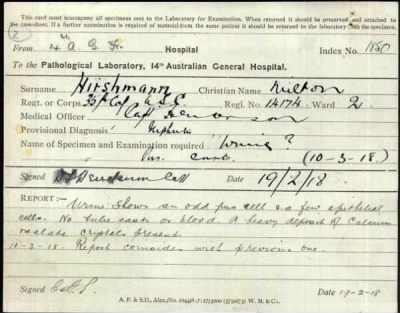 This card must accompany all specimens sent to the Laboratory for Examination. When returned it should be preserved and attached to
the case-sheet. If a further examination is required of material from the same patient it should be returned to the laboratory with the specimen.
2
From 14th A. G. H. Hospital Index No. 1880
To the Pathological Laboratory, 14th Australian General Hospital.
Surname Hirshmann Christian Name Milton
Regt. or Corps 35th Coy A.S.C. Regl. No. 14174 Ward 2
Medical Officer Capt Henderson
Provisional Diagnosis Nephritis
Name of Specimen and Examination required Urine ?
Pus. casts. (10-3-18.)
Signed Capt Date 19/2/18
REPORT:- Urine shows an odd pus cell & a few epithelial
cells. No tube casts or blood. A heavy deposit of Calcium
oxalate crystals present.
10-3-18. Report coincides with previous one.
Signed Date 19-2-18
A. P. & S.D., Alex./No. W. M. & Co.